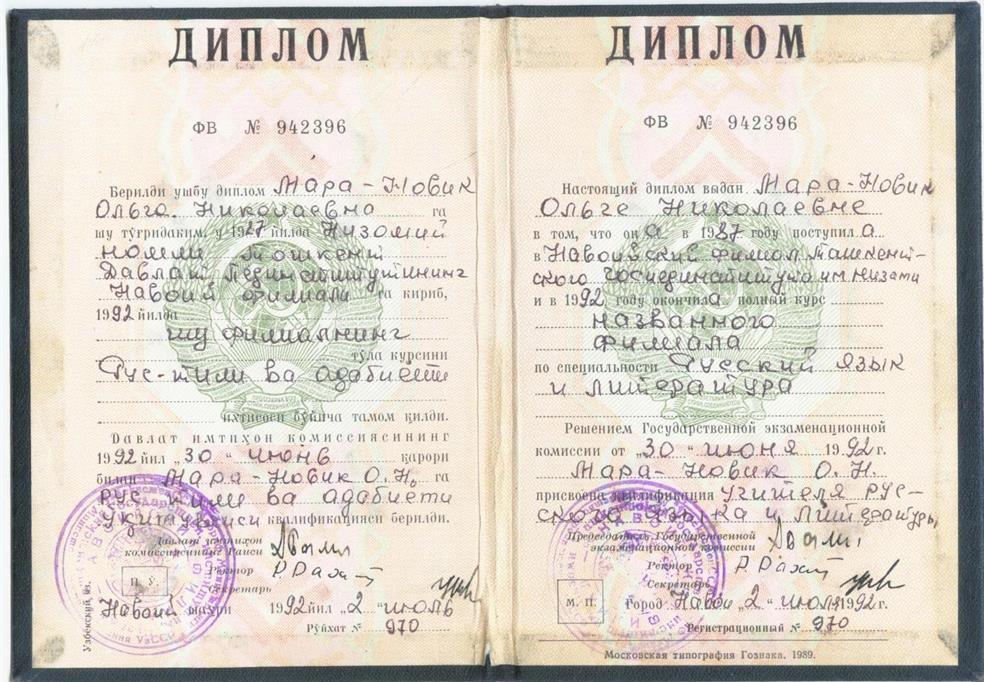 ДИПЛОМ
ФВ № 942396
Берилди ушбу диплом Мара-Новик
Ольга Николаевна га
шу тўғридаким, у 1987 йилда Низомий
номли Тошкент
Давлат Пединститутининг
Навоий филиали га кириб,
1992 йилда
шу филиалнинг
тўла курсини
Рус-тили ва адабиёти
ихтисоси бўйича тамом қилди.
Давлат имтиҳон комиссиясининг
1992 йил „30“ июнь қарори
билан Мара-Новик О.Н. га
Рус-тили ва адабиети
Укитувчиси квалификацияси берилди.
Давлат имтиҳон
комиссиясининг Раиси
Ректор
Секретарь
П. Ў.
Навоий шаҳри 1992 йил „2“ июль
Рўйхат № 970
Узбекский яз.
ДИПЛОМ
ФВ № 942396
Настоящий диплом выдан Мара-Новик
Ольге Николаевне
в том, что она в 1987 году поступила
в Навоийский филиал Ташкент-
ского госпединститута им Низами
и в 1992 году окончила полный курс
названного
филиала
по специальности Русский язык
и литература
Решением Государственной экзаменационной
комиссии от „30“ июня 1992 г.
Мара-Новик О.Н.
присвоена квалификация Учителя рус-
ского языка и литературы
Председатель Государственной
экзаменационной комиссии
Ректор
Секретарь
М. П.
Город Навои „2“ июля 1992 г.
Регистрационный № 970
Московская типография Гознака. 1989.